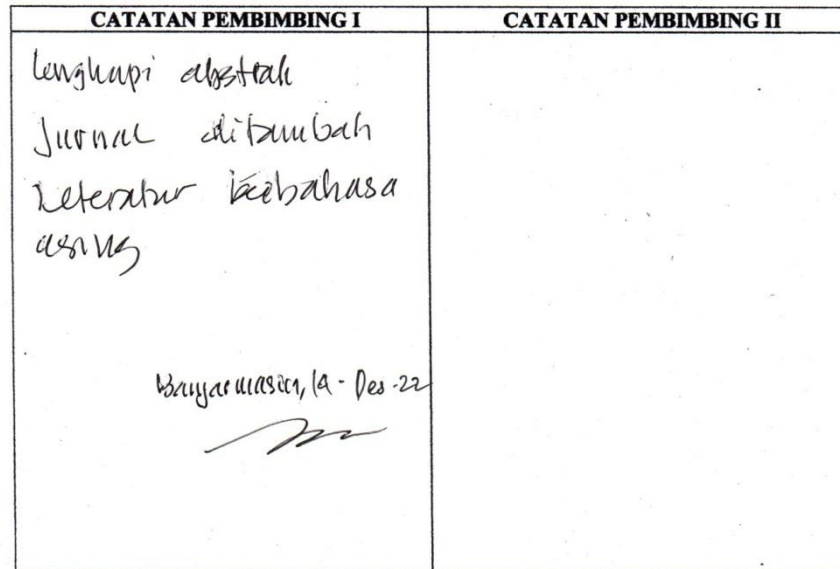 CATATAN PEMBIMBING I
CATATAN PEMBIMBING II
lengkapi abstrak
Jurnal ditambah
Leteratur berbahasa
asing
Banjarmasin, 14 - Des - 22